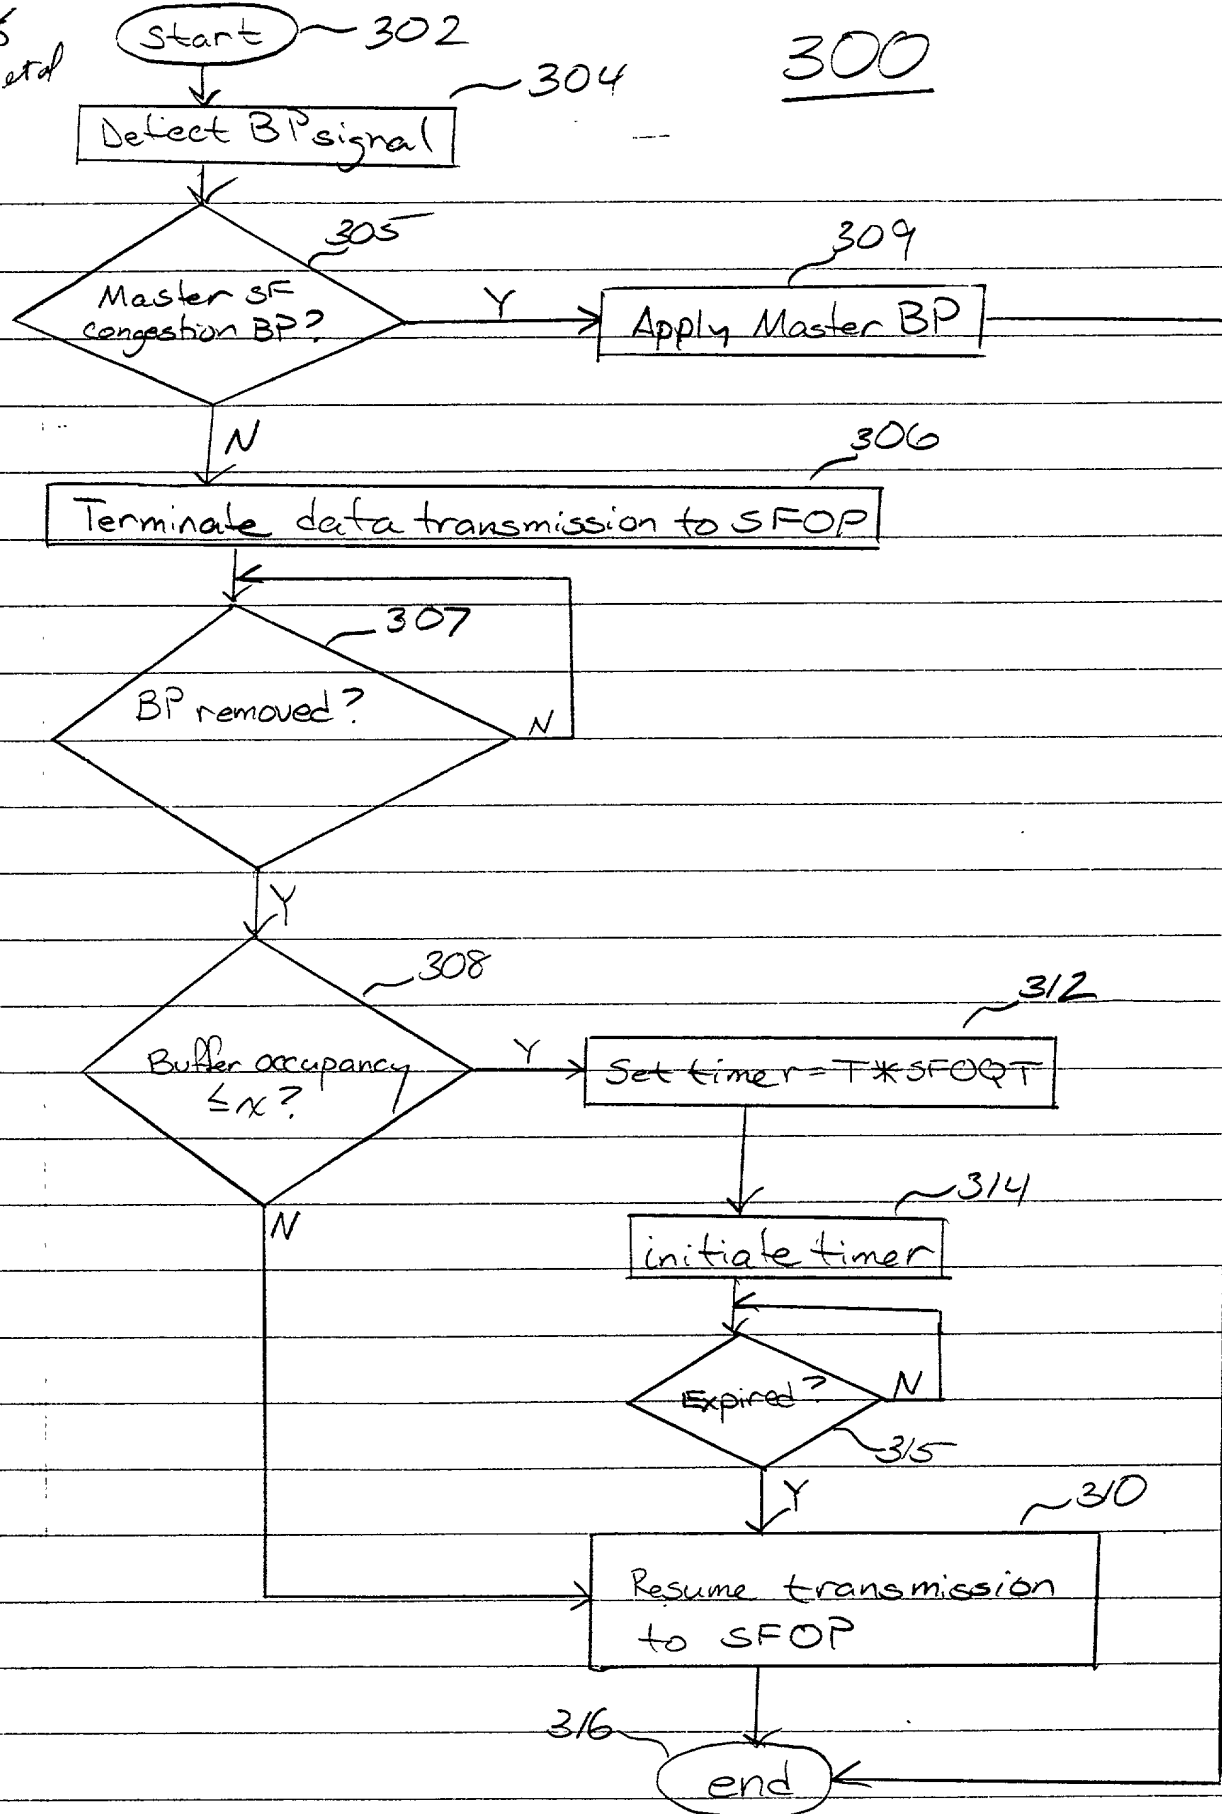 start 302
et al
300
304
Detect BP signal
305
Master SF
congestion BP?
Y
309
Apply Master BP
N
306
Terminate data transmission to SFOP
307
BP removed?
N
Y
308
Buffer occupancy
≤ x?
Y
312
Set timer = T*SFOQT
N
314
initiate timer
Expired?
N
315
Y
310
Resume transmission
to SFOP
316
end